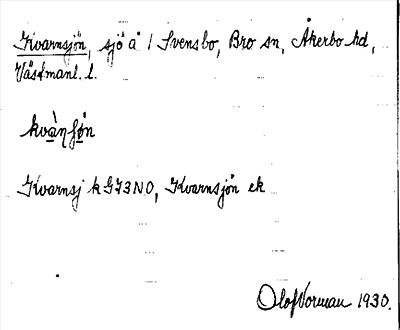 Kvarnsjön, sjö å / Svensbo, Bro sn, Åkerbo hd,
Västmanl. l.
kvà̱nʃø̱n
Kvarnsj k GJ3NO, Kvarnsjön ek
Olof Norman 1930.